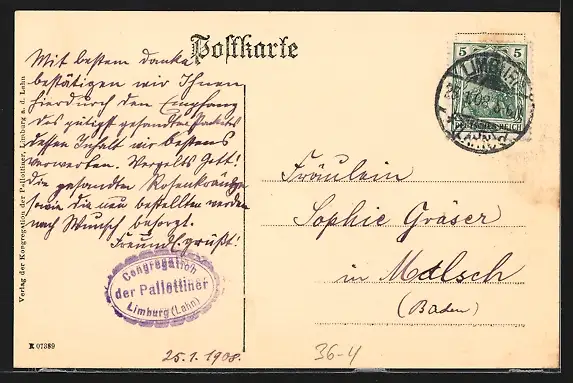 Postkarte
Mit bestem Danke
bestätigen wir Ihnen
hierdurch den Empfang
des gütigst gesandten Pakets
dessen Inhalt wir bestens
verwerten. Vergelts Gott!
Die gesandten Rosenkränze
sowie die neu bestellten werden
nach Wunsch besorgt.
Freundl. grüßt!
Congregation
der Pallottiner
Limburg (Lahn)
25.1.1908.
Verlag der Kongregation der Pallottiner, Limburg a. d. Lahn
K 07389
5 5
LIMBURG
DEUTSCHES REICH
Fräulein
Sophie Gräser
in Malsch
(Baden)
36-4